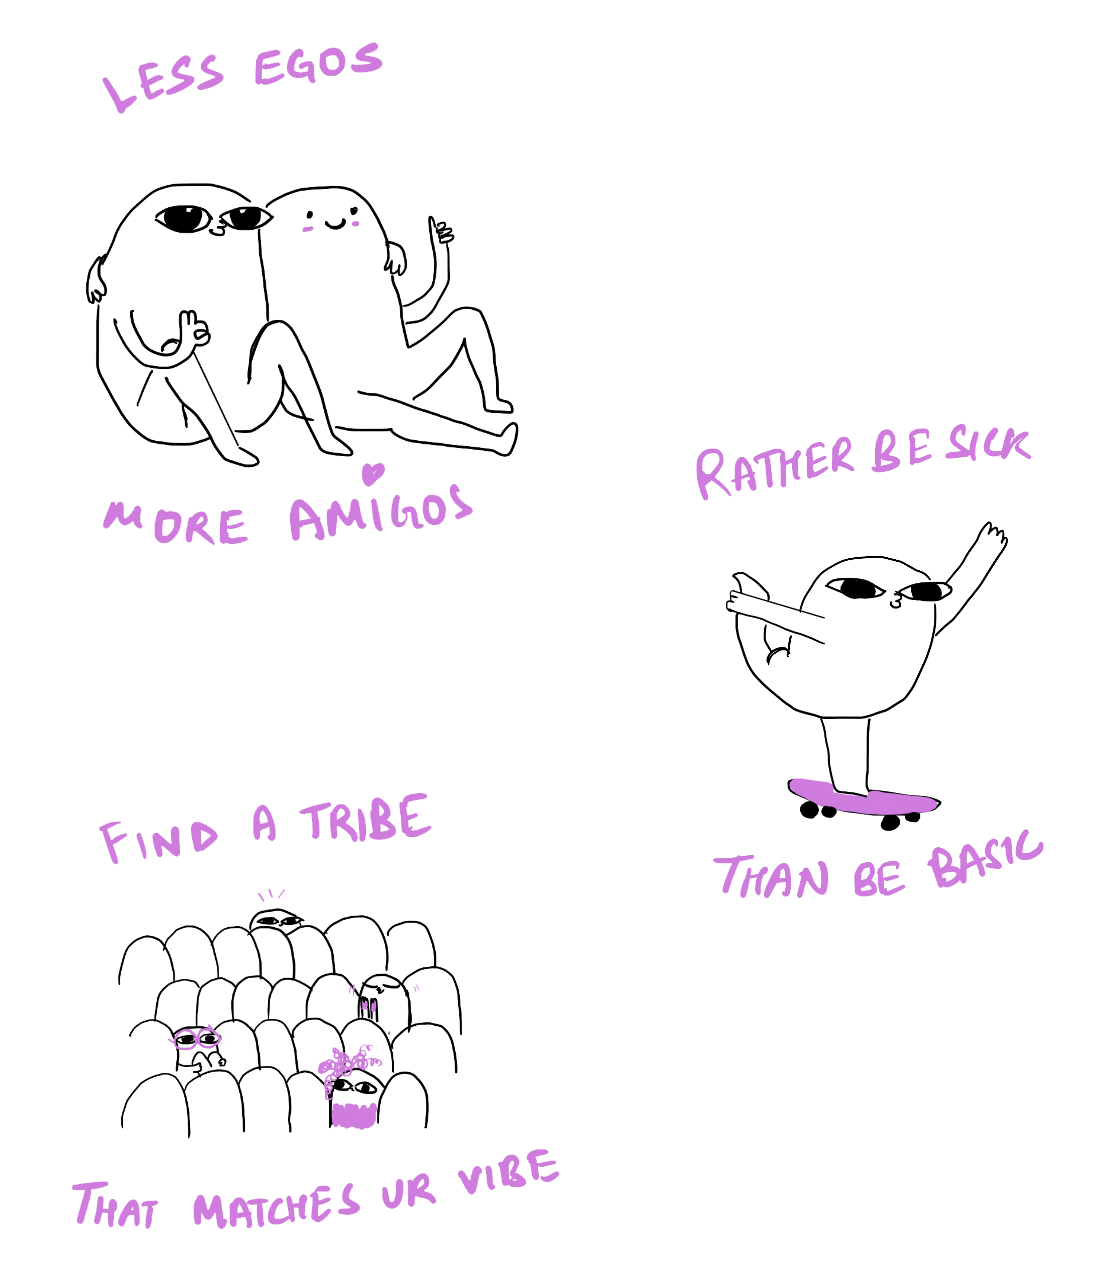 LESS EGOS
MORE AMIGOS
RATHER BE SICK
THAN BE BASIC
FIND A TRIBE
THAT MATCHES UR VIBE